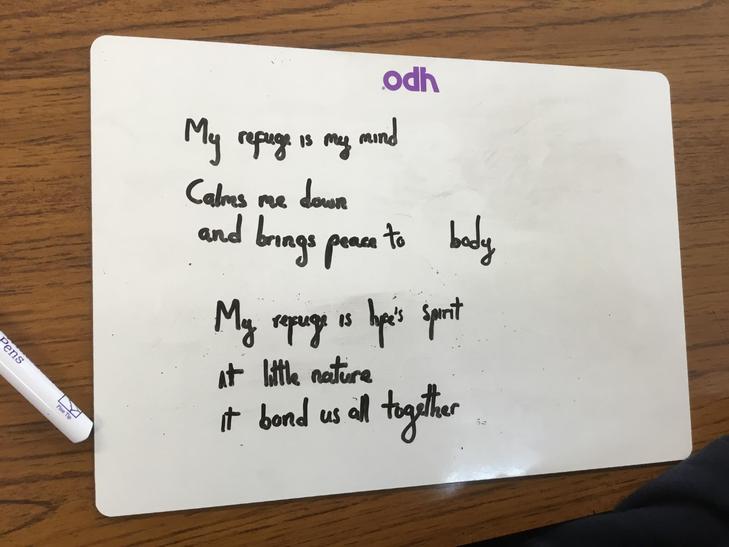 odh
My refuge is my mind
Calms me down
and brings peace to body
My refuge is life's spirit
it little nature
it bond us all together
Pens
Fine Tip